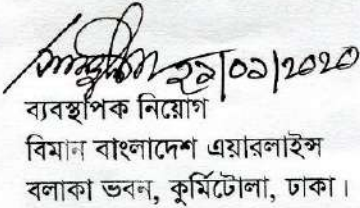 ২৯|০৯|২০২০
ব্যবস্থাপক নিয়োগ
বিমান বাংলাদেশ এয়ারলাইন্স
বলাকা ভবন, কুর্মিটোলা, ঢাকা।